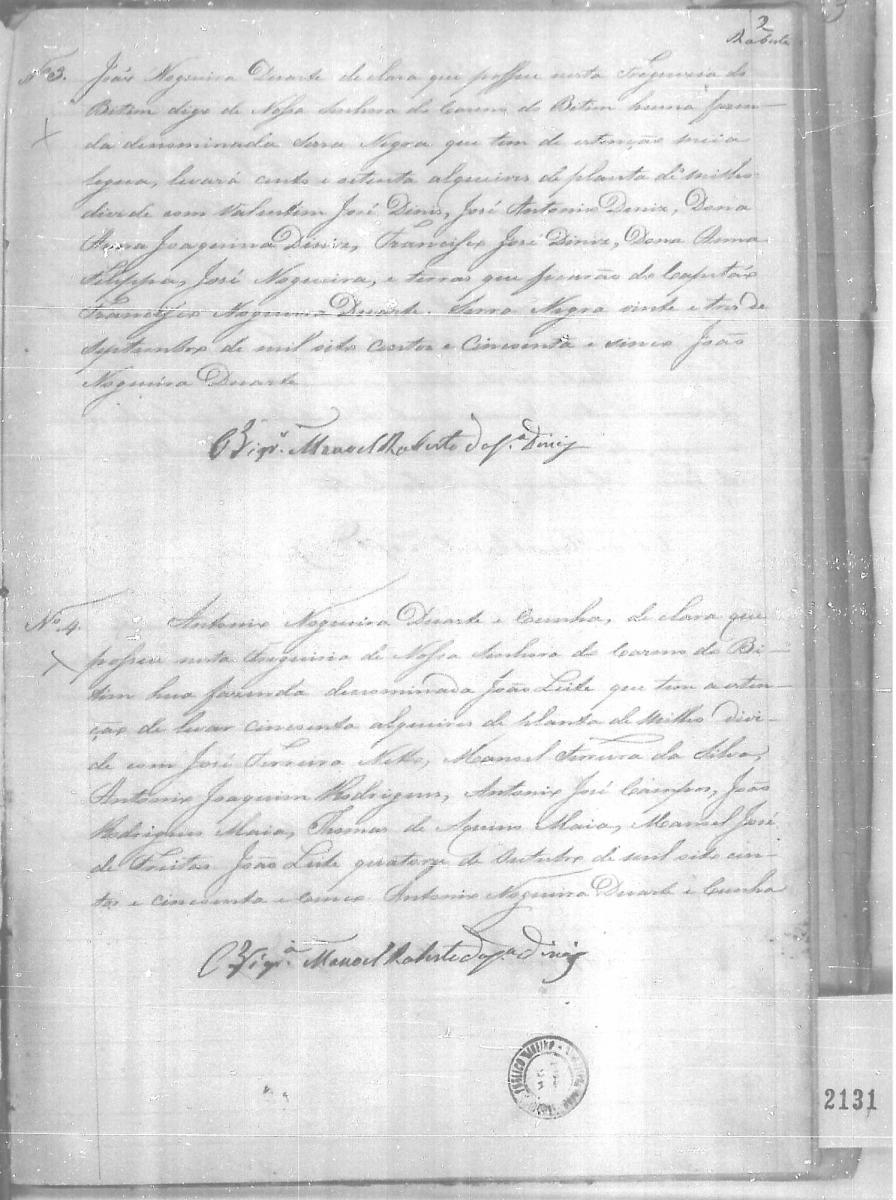 2
Roberto
Nº 3. João Nogueira Duarte declara que possue nesta Freguezia do
Betim digo de Nossa Senhora do Carmo do Betim huma fazen-
da denominada Serra Negra que tem de extenção meia
legua, levará cento e oitenta alqueires de planta de milho
divide com Valentim José Diniz, José Antonio Diniz, Dona
Anna Joaquina Diniz, Francisco José Diniz, Dona Anna
Felippa, José Nogueira, e terras que ficarão do Capitão
Francisco Nogueira Duarte. Serra Negra vinte e tres de
Septembro de mil oito centos e cincoenta e sinco João
Nogueira Duarte
O Vigrº. Manoel Roberto da Sª Diniz
Nº 4. Antonio Nogueira Duarte e Cunha, declara que
possue nesta Freguizia de Nossa Senhora do Carmo do Be-
tim hua fazenda denominada João Leite que tem a exten-
ção de levar cincoenta alqueires de planta de Milho divi-
de com José Ferreira Netto, Manoel Ferreira da Silva,
Antonio Joaquim Rodrigues, Antonio José Campos, João
Rodrigues Maia, Thomas de Aquino Maia, Manoel José
de Freitas João Leite quatorze de Outubro de mil oito cen-
tos e cincoenta e cinco Antonio Nogueira Duarte e Cunha
O Vigrº. Manoel Roberto da Sª Diniz
PUBLICO MINEIRO
2131